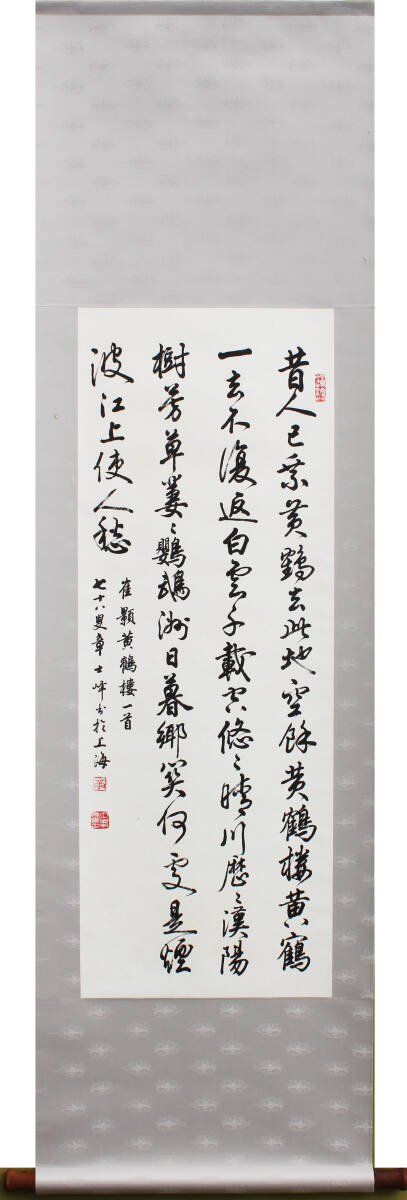 昔人已乘黄鶴去此地空餘黄鶴樓黄鶴
一去不復返白雲千載空悠〻晴川歷〻漢陽
樹芳草萋〻鸚鵡洲日暮鄉關何處是煙
波江上使人愁
崔顥黄鶴樓一首
七十八叟章士峰书於上海